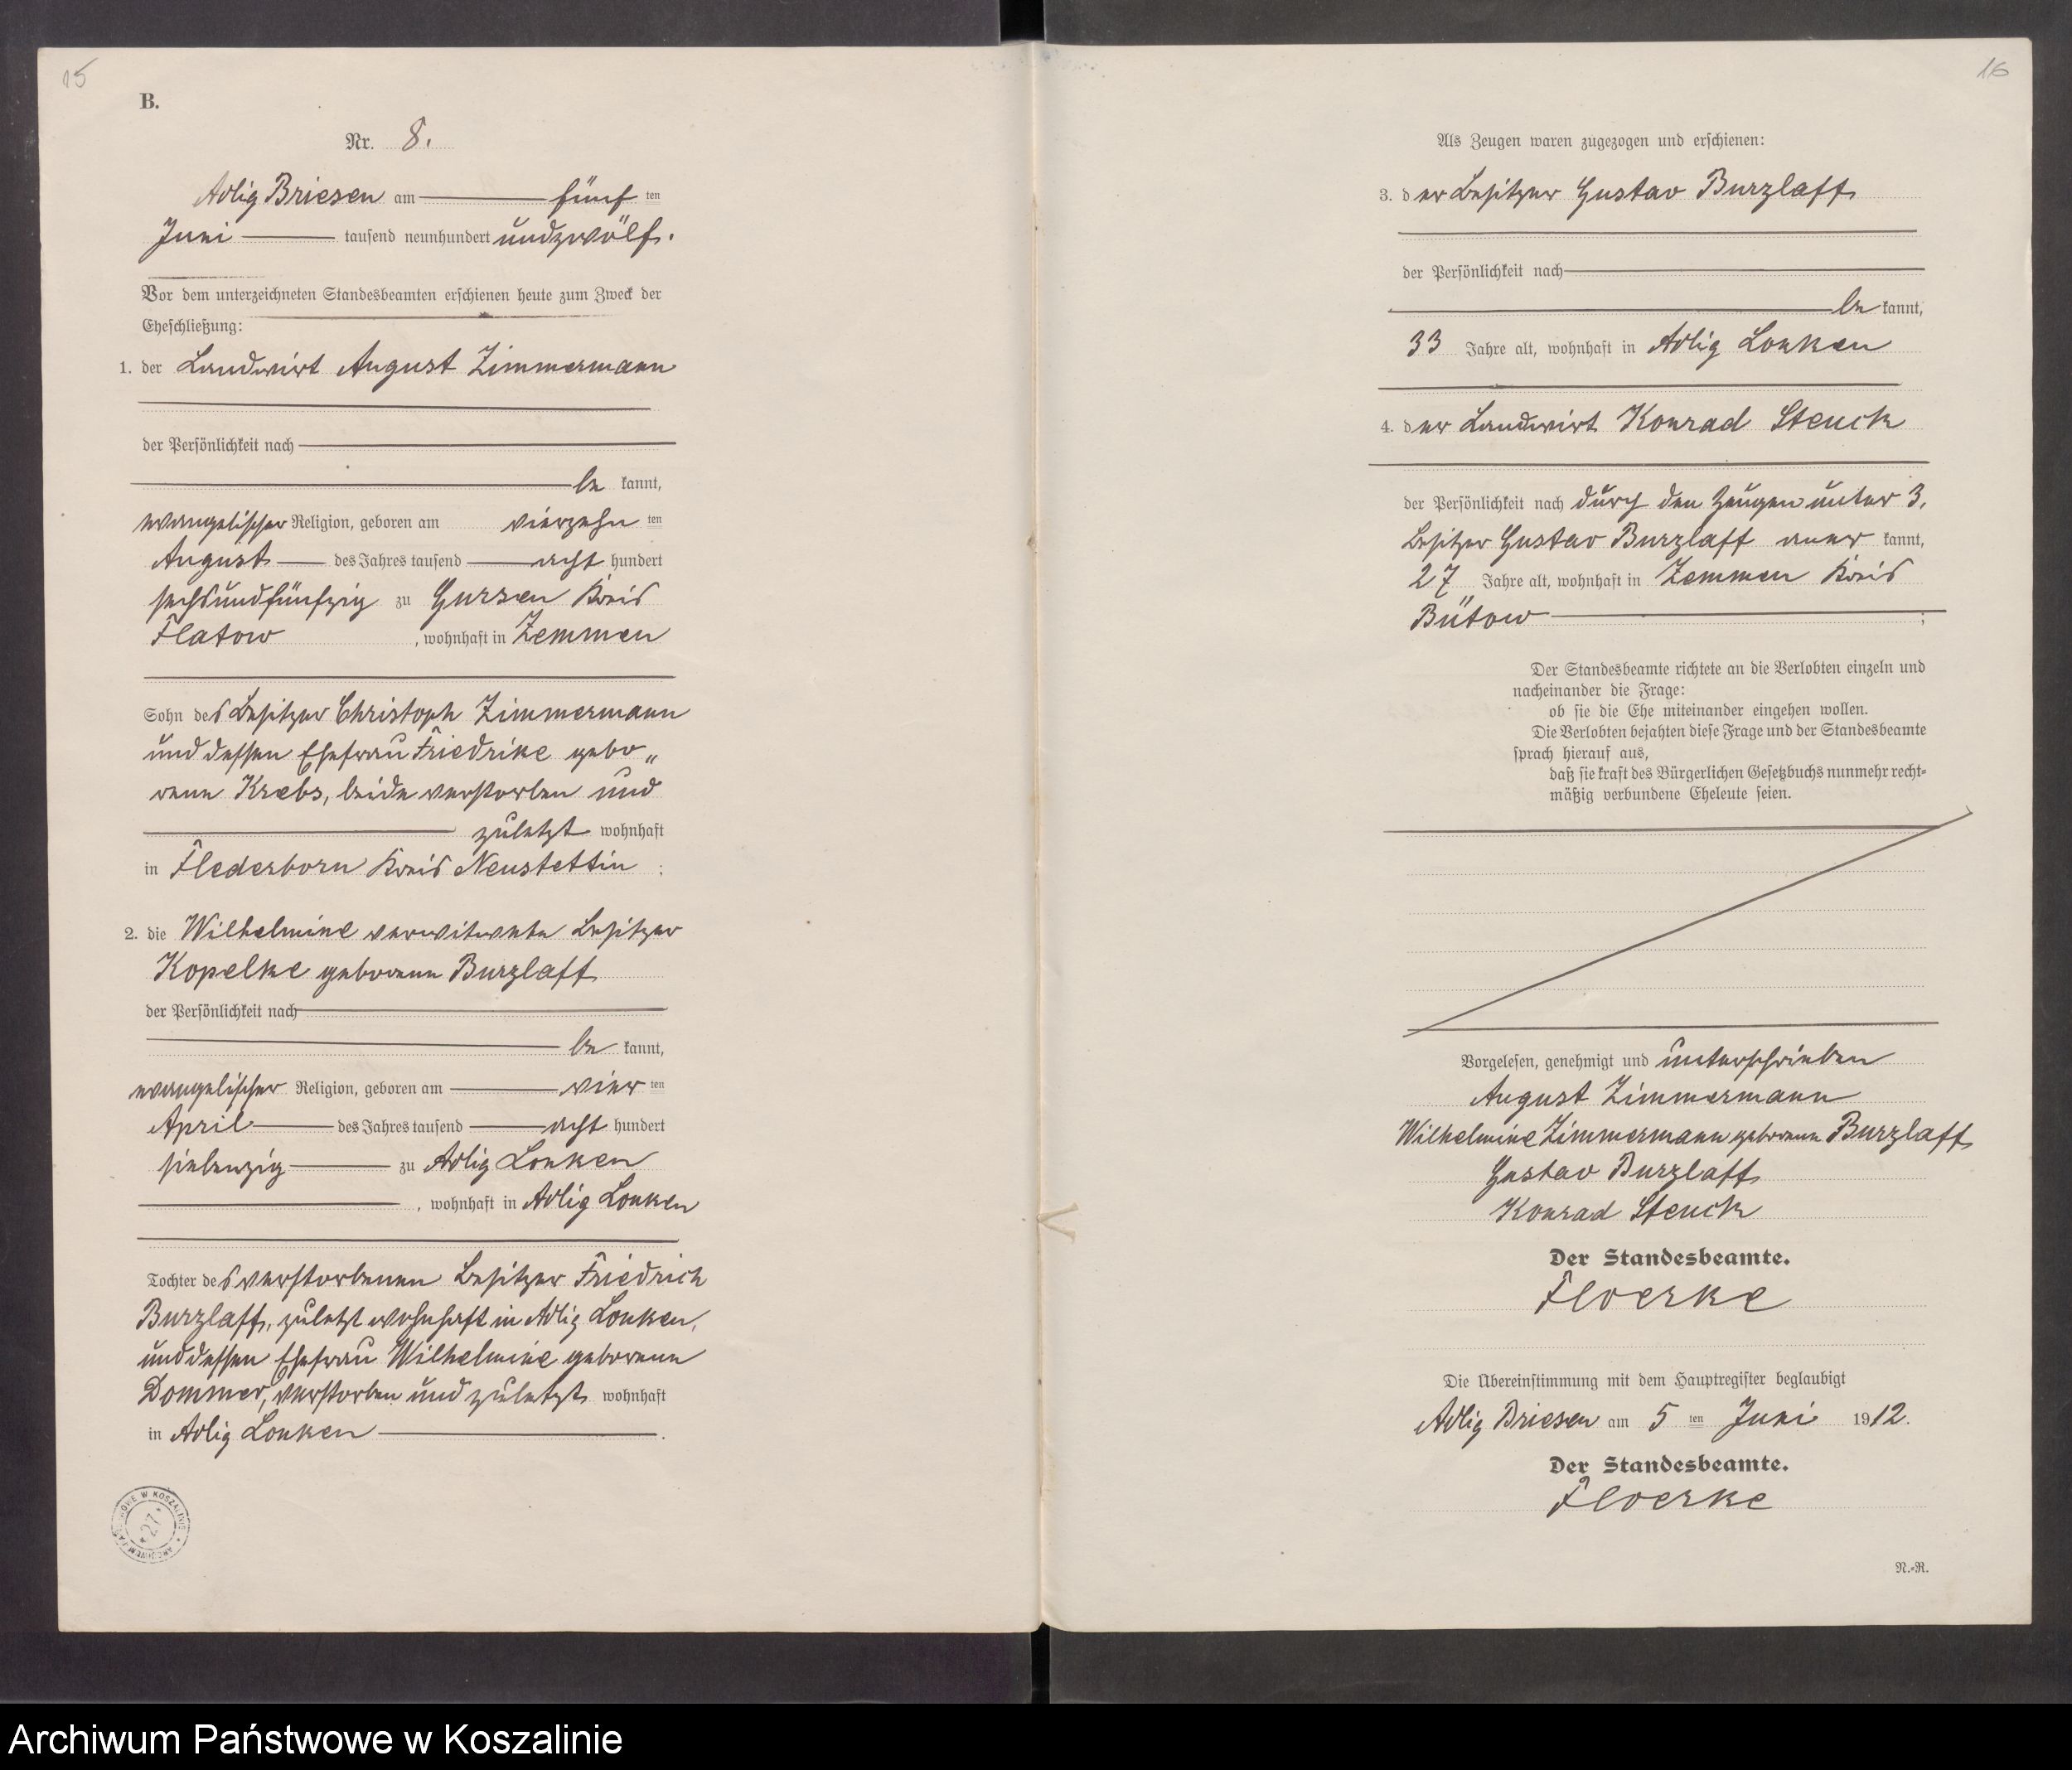 15
B.
Nr. 8.
Adlig Briesen am fünf ten
Juni tausend neunhundert undzwölf.
Vor dem unterzeichneten Standesbeamten erschienen heute zum Zweck der
Eheschließung:
1. der Landwirt August Zimmermann
der Persönlichkeit nach
be kannt,
evangelischer Religion, geboren am vierzehn ten
August des Jahres tausend acht hundert
sechsundfünfzig zu Gursen Kreis
Flatow, wohnhaft in Zemmen
Sohn des Besitzer Christoph Zimmermann
und dessen Ehefrau Friedrike gebo„
rene Krebs, beide verstorben und
zuletzt wohnhaft
in Flederborn Kreis Neustettin ;
2. die Wilhelmine verwitwete Besitzer
Kopelke geborene Burzlaff
der Persönlichkeit nach
be kannt,
evangelischer Religion, geboren am vier ten
April des Jahres tausend acht hundert
siebenzig zu Adlig Lonken
, wohnhaft in Adlig Lonken
Tochter des verstorbenen Besitzer Friedrich
Burzlaff, zuletzt wohnhaft in Adlig Lonken,
und dessen Ehefrau Wilhelmine geborene
Dommer, verstorben und zuletzt wohnhaft
in Adlig Lonken .
ARCHIWUM PAŃSTWOWE W KOSZALINIE
27
16
Als Zeugen waren zugezogen und erschienen:
3. der Besitzer Gustav Burzlaff
der Persönlichkeit nach
be kannt,
33 Jahre alt, wohnhaft in Adlig Lonken
4. der Landwirt Konrad Steuck
der Persönlichkeit nach durch den Zeugen unter 3,
Besitzer Gustav Burzlaff aner kannt,
27 Jahre alt, wohnhaft in Zemmen Kreis
Bütow ;
Der Standesbeamte richtete an die Verlobten einzeln und
nacheinander die Frage:
ob sie die Ehe miteinander eingehen wollen.
Die Verlobten bejahten diese Frage und der Standesbeamte
sprach hierauf aus,
daß sie kraft des Bürgerlichen Gesetzbuchs nunmehr recht-
mäßig verbundene Eheleute seien.
Vorgelesen, genehmigt und unterschrieben
August Zimmermann
Wilhelmine Zimmermann geborene Burzlaff
Gustav Burzlaff
Konrad Steuck
Der Standesbeamte.
Floerke
Die Übereinstimmung mit dem Hauptregister beglaubigt
Adlig Briesen am 5 ten Juni 1912.
Der Standesbeamte.
Floerke
N.-R.
Archiwum Państwowe w Koszalinie